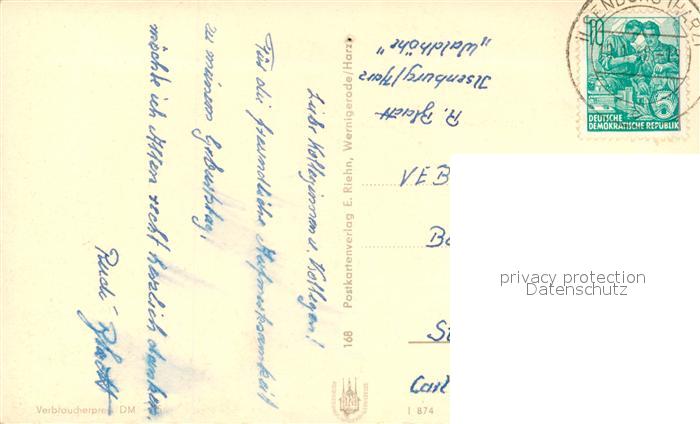 Liebe Kolleginnen u. Kollegen!
Für die freundliche Aufmerksamkeit
zu meinem Geburtstag,
möchte ich Allen recht herzlich danken.
Rudi
168 Postkartenverlag E. Riehn, Wernigerode/Harz
R.
Ilsenburg/Harz
„Waldhöhe"
ILSENBURG (HARZ)
10
DEUTSCHE
DEMOKRATISCHE REPUBLIK
VEB
Carl
Verbraucherpreis DM
I 874
privacy protection
Datenschutz